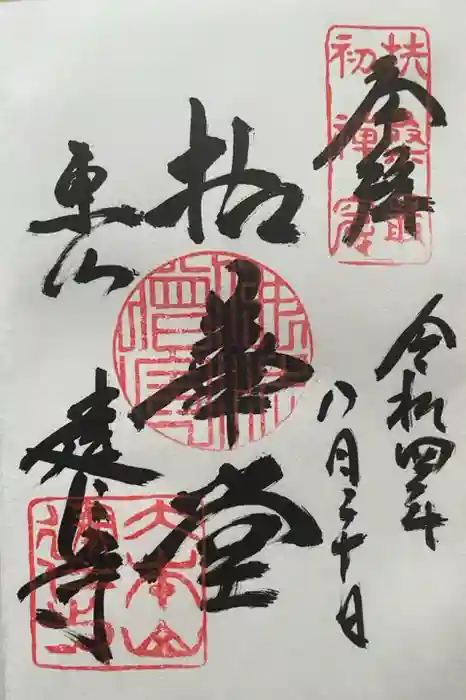 奉拝
扶桑最
初禅窟
令和四年
八月二十日
拈華堂
東山
建仁寺
大本山
建仁寺